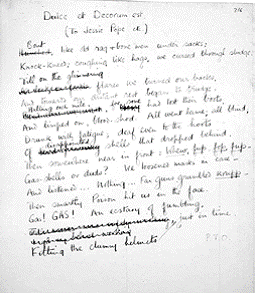 Dulce et Decorum est
(To Jessie Pope etc.)
Bent like old rag-bone men under sacks;
Knock-kneed; coughing like hags, we cursed through sludge;
Till on the
flares we turned our backs,
And towards our distant rest began to trudge.
had lost their boots,
And limped on, blood-shod. All went lame; all blind;
Drunk with fatigue; deaf even to the hoots
Of shells that dropped behind.
Then somewhere near in front: Whew, fup, fup, fup
Gas-shells or duds? We loosened masks in case
And listened... Nothing... Far guns grumbled
Then smartly Poison hit us in the face.
Gas! GAS! An ecstasy of fumbling.
just in time.
Fitting the clumsy helmets
P.T.O